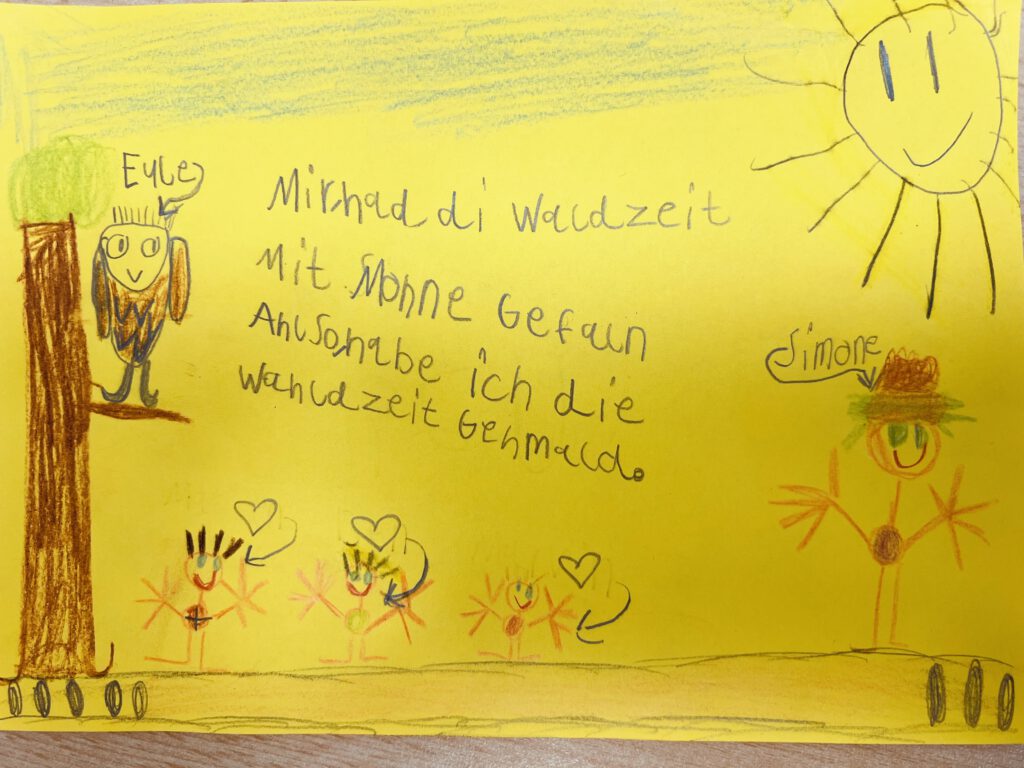 Eule
Mir had di Waldzeit
Mit Simone Gefaln
Simone
Ahlso habe ich die
Wahldzeit Gehmald.